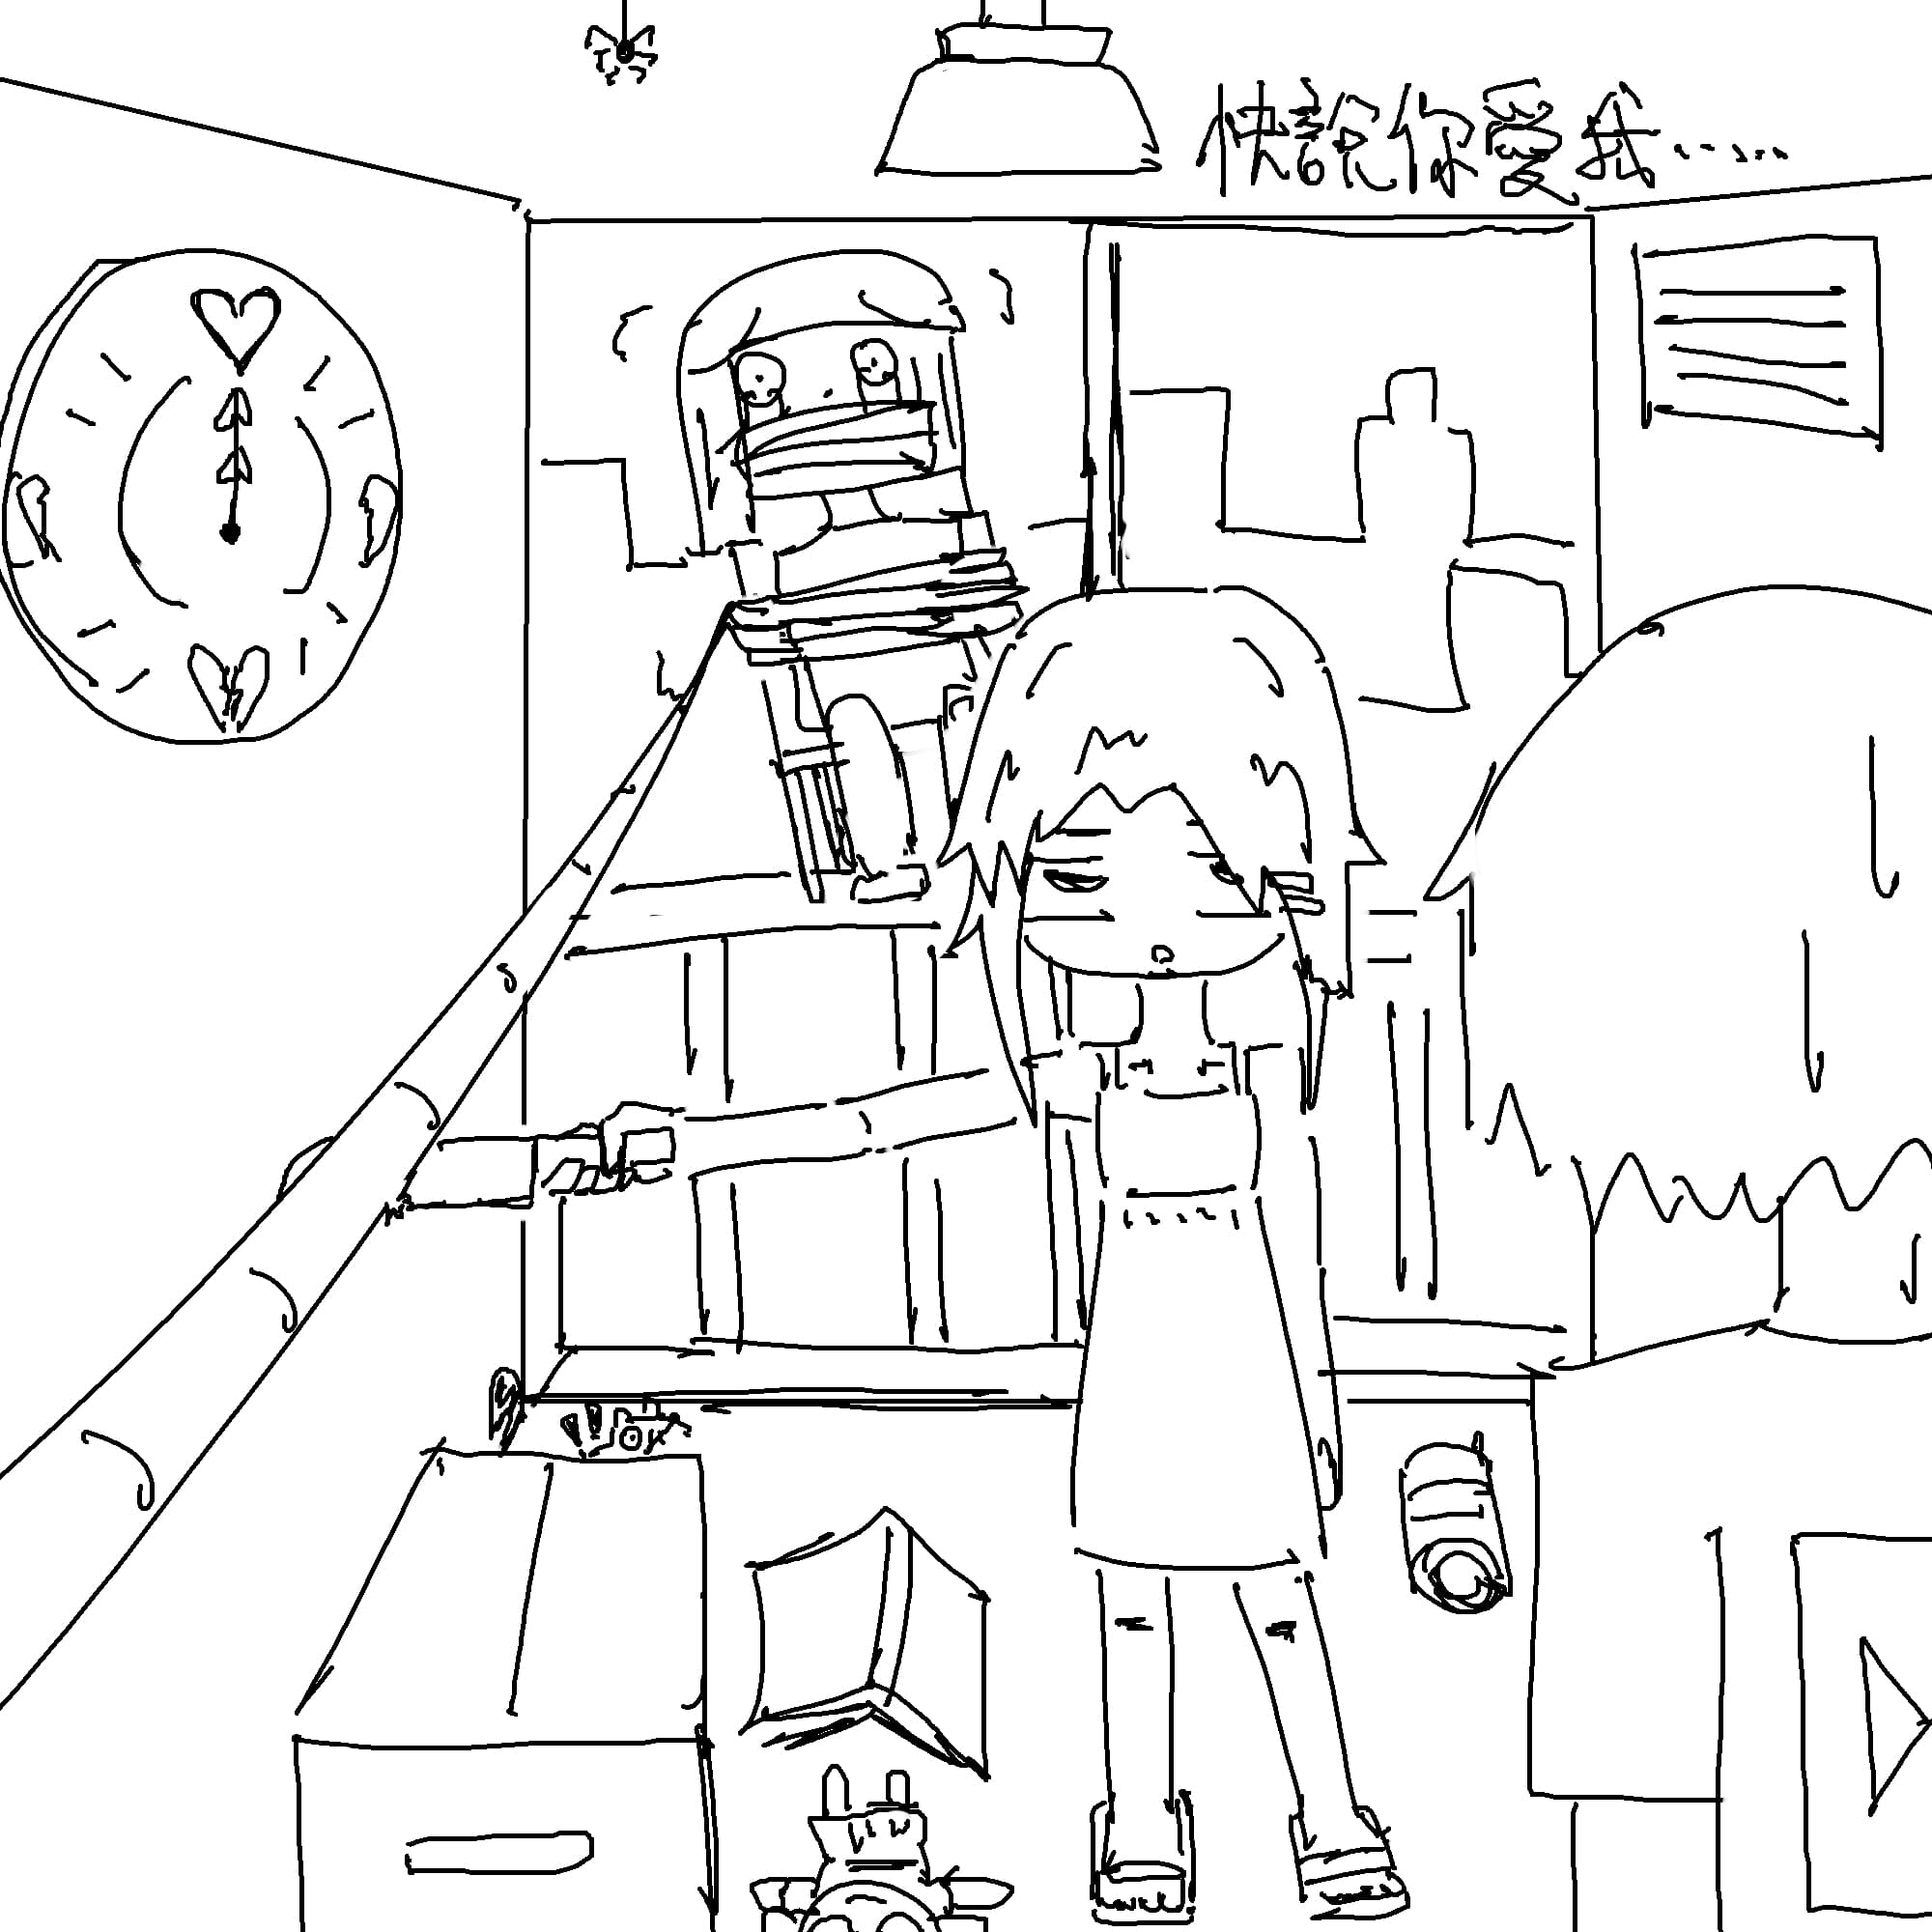 快說你愛我......